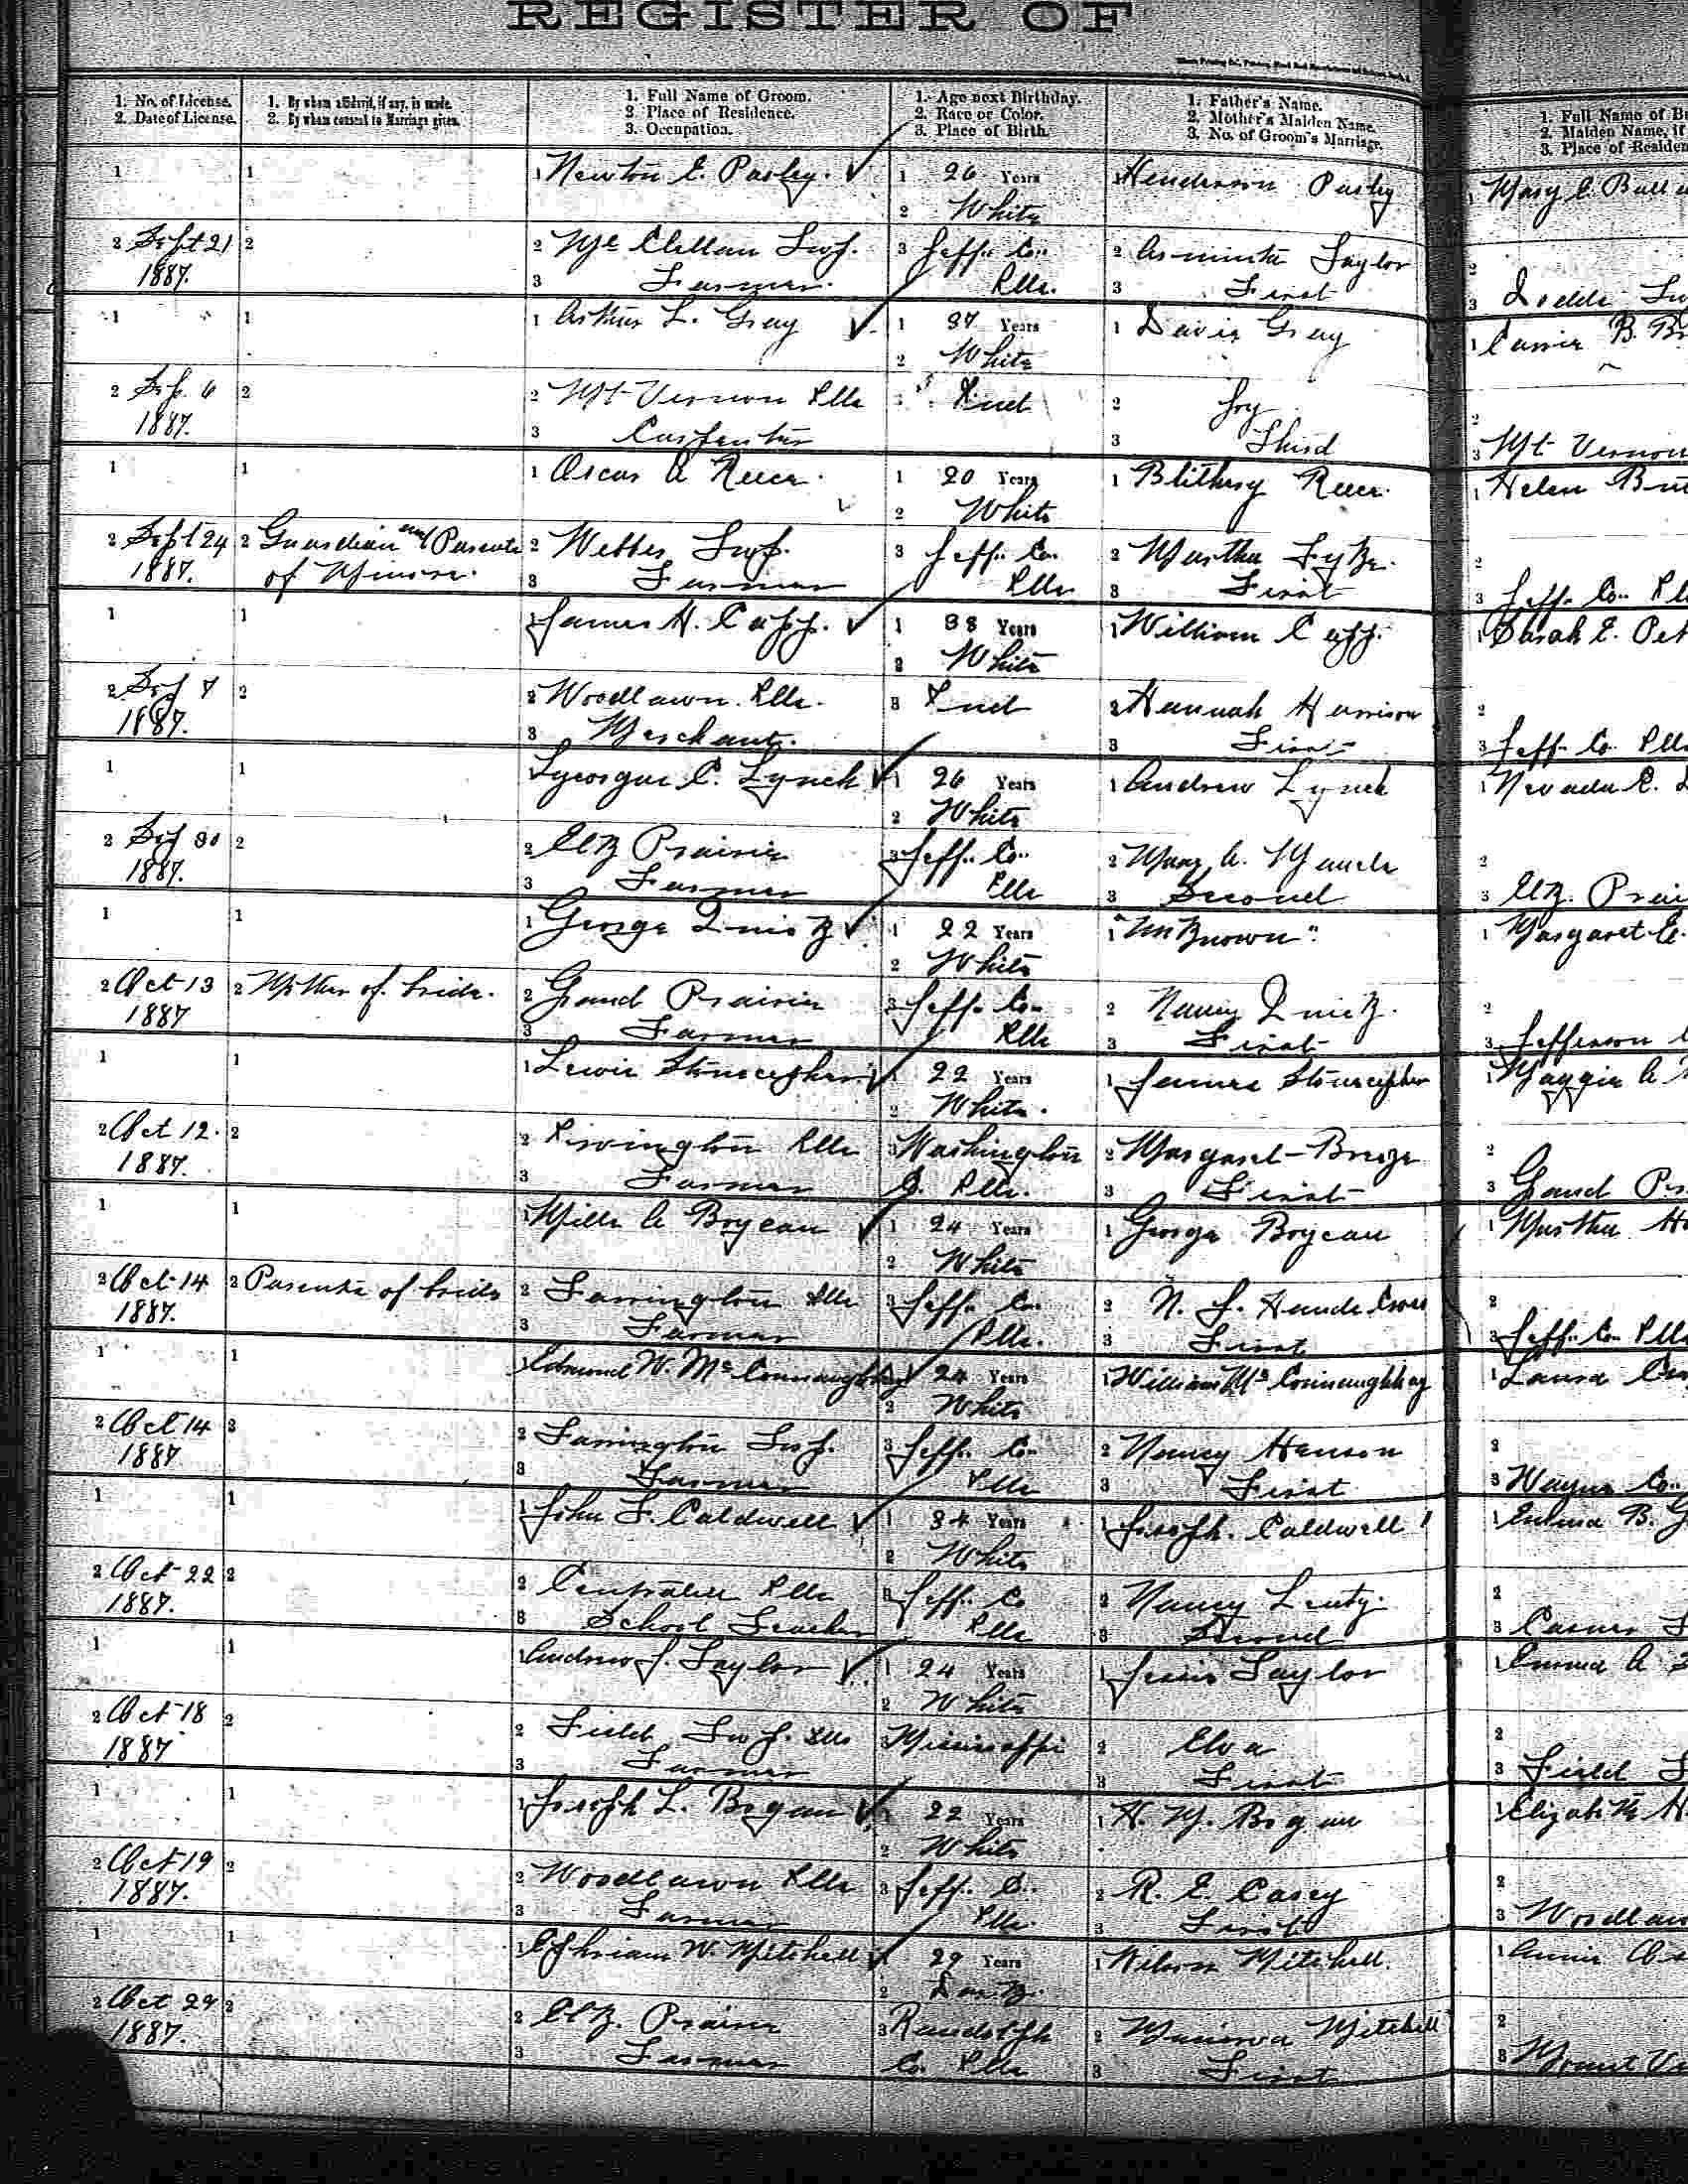 REGISTER OF
1. No. of License.
2. Date of License.
1. By whom affidavit, if any, is made.
2. By whom consent to Marriage given.
1. Full Name of Groom.
2 Place of Residence.
3. Occupation.
1.- Age next Birthday.
2. Race or Color.
3. Place of Birth.
1. Father's Name.
2. Mother's Maiden Name.
3. No. of Groom's Marriage.
1. Full Name of
2. Maiden Name, if
3. Place of Residen
1 1 1 Newton E. Pasley. 1 26 Years 1 Henderson Pasley 1 Mary E.
2 White
2 Sept 21 2 2 Mc Clellan Twp. 3 Jeff. Co. 2 Taylor 2
1887. 3 Farmer. Ills. 3 First 3
1 1 1 Arthur L. Gray 1 37 Years 1 Davis Gray 1 Carrie B.
2 White
2 Sep. 6 2 2 Mt Vernon Ills 3 Ind 2 Joy 2
1887. 3 Carpenter 3 Third 3 Mt Vernon
1 1 1 Oscar A Reece. 1 20 Years 1 Reece. 1 Helen
2 White
2 Sept 24 2 Guardian and Parents 2 Webber Twp. 3 Jeff. Co. 2 Martha Fyke. 2
1887. of Minors. 3 Farmer Ills 3 First 3 Jeff. Co.
1 1 1 James H. Capp. 1 38 Years 1 William Capp. 1 Sarah E.
2 White
2 Sep 7 2 2 Woodlawn. Ills. 3 Ind 2 Hannah Harrison 2
1887. 3 Merchant. 3 First 3 Jeff. Co. Ills
1 1 1 Lycorgus C. Lynch 1 26 Years 1 Andrew Lynch 1 Nevada C.
2 White
2 Sep 30 2 2 Elk Prairie 3 Jeff. Co. 2 Mary A. 2
1887. 3 Farmer Ills 3 Second 3 Elk. Prai
1 1 1 George Quick 1 22 Years 1 "Unknown". 1 Margaret E.
2 White
2 Oct 13 2 Mother of bride. 2 Grand Prairie 3 Jeff. Co. 2 Nancy Quick. 2
1887 3 Farmer Ills 3 First 3 Jefferson
1 1 1 Lewis Stonecipher 1 22 Years 1 James Stonecipher 1 Maggie A
2 White.
2 Oct 12. 2 2 Irvington Ills 3 Washington 2 Margaret Breeze 2
1887. 3 Farmer Co. Ills. 3 First 3 Grand
1 1 1 Mills A Boycan 1 24 Years 1 George Boycan 1 Martha
2 White
2 Oct 14 2 Parents of bride 2 Farrington Ills 3 Jeff. Co. 2 N. J. 2
1887. 3 Farmer Ills. 3 First 3 Jeff. Co. Ills
1 1 1 Edmund W. Mc Connaughhay 1 24 Years 1 William Mc Connaughhay 1 Laura
2 White
2 Oct 14 2 2 Farrington Twp. 3 Jeff. Co. 2 Nancy Hanson 2
1887 3 Farmer Ills 3 First 3 Wayne Co.
1 1 1 John F. Caldwell 1 34 Years 1 Joseph. Caldwell 1 B.
2 White
2 Oct 22 2 2 Centralia Ills 3 Jeff. Co 2 Nancy 2
1887. 3 School Teacher Ills 3 Second 3 Casner
1 1 1 Andrew J. Taylor 1 24 Years 1 Taylor 1 Emma A
2 White
2 Oct 18 2 2 Field Twp. Ills 3 Mississippi 2 Elva 2
1887 3 Farmer 3 First 3 Field
1 1 1 Joseph L. Bogan 1 22 Years 1 H. M. Bogan 1 Elizabeth
2 White
2 Oct 19 2 2 Woodlawn Ills 3 Jeff. Co. 2 R. E. Casey 2
1887. 3 Farmer Ills. 3 First 3 Woodlaw
1 1 1 Ephriam W. Mitchell 1 29 Years 1 Wilson Mitchell. 1 Annie
2 Dark.
2 Oct 29 2 2 Elk. Prairie 3 Randolph 2 Minerva Mitchell 2
1887. 3 Farmer Co. Ills 3 First 3 Mount